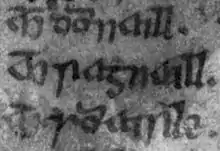 m̄ dōnaill.
m̄ ragnaill.
m̄ s̄oairle.